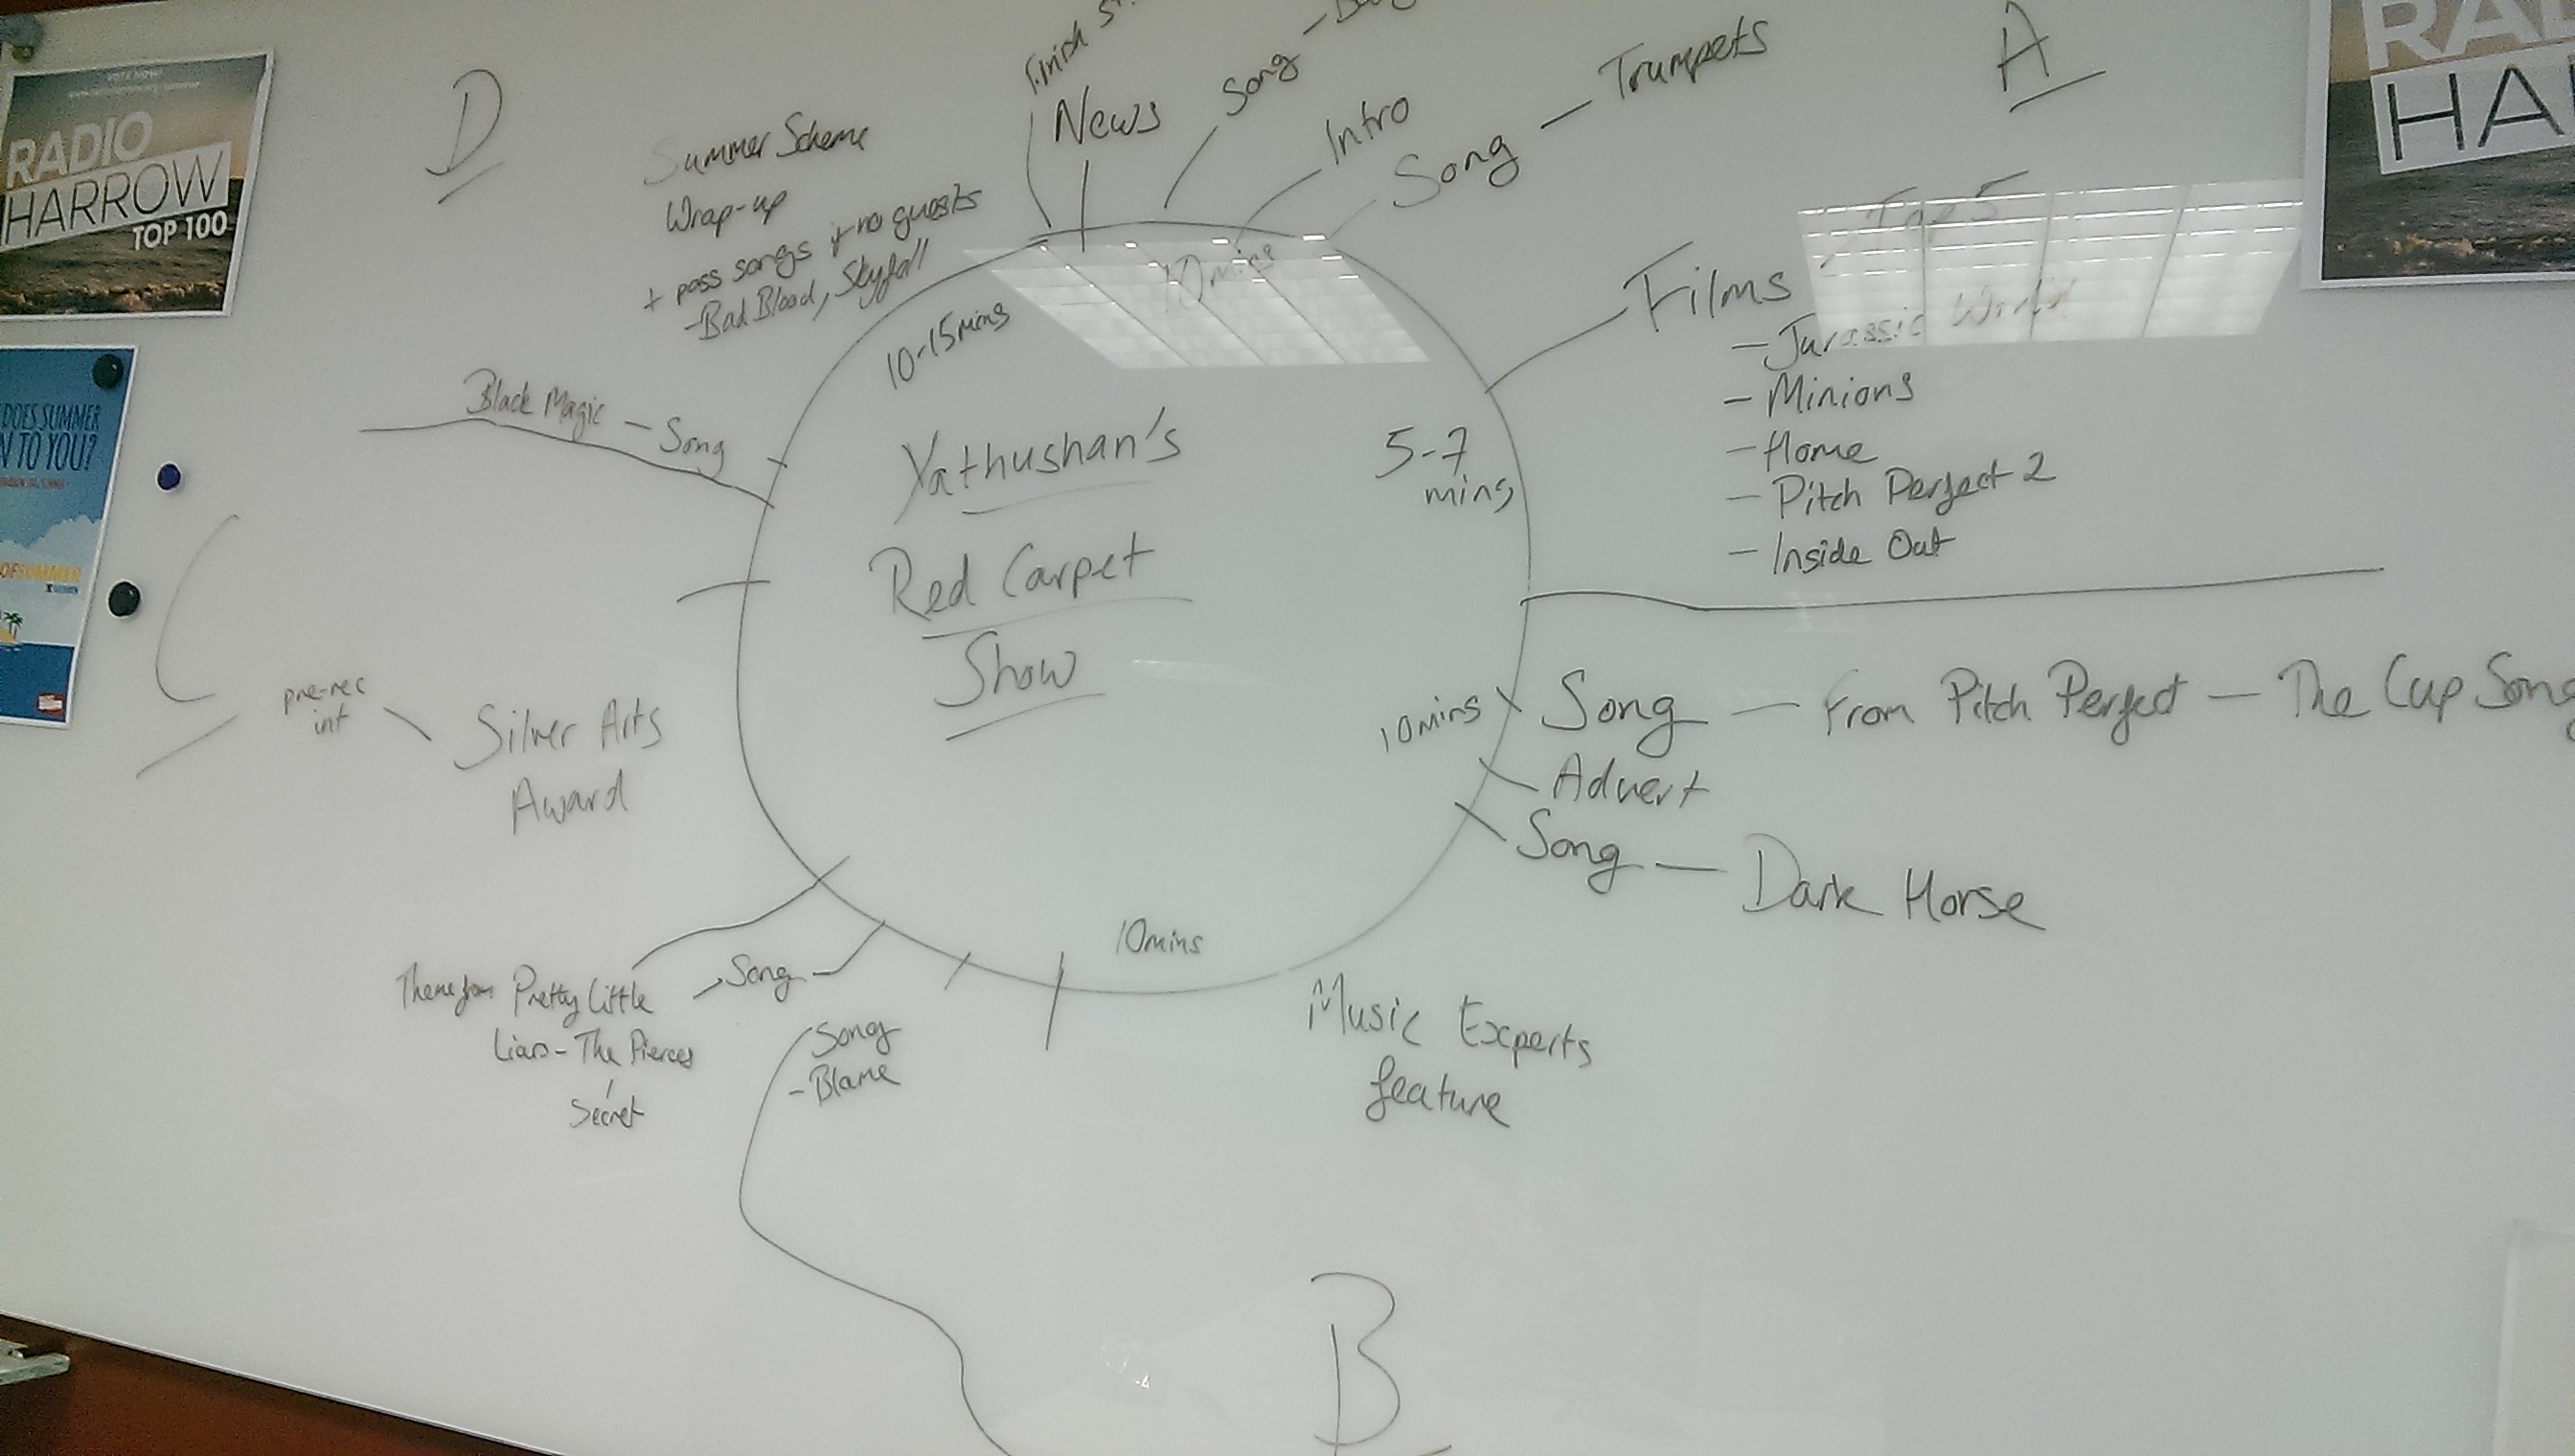 VOTE NOW!
RADIO
HARROW
TOP 100
DOES SUMMER
TO YOU?
OF SUMMER
D
Summer Scheme
Wrap-up
+ poss songs if no guests
- Bad Blood, Skyfall
10-15mins
Finish
News
Song -
Intro
Song — Trumpets
10 mins
A
RA
HA
Films - Top 5
- Jurassic World
- Minions
- Home
- Pitch Perfect 2
- Inside Out
5-7
mins
Yathushan's
Red Carpet
Show
10mins
Song — From Pitch Perfect — The Cup Song
Advert
Song — Dark Horse
10mins
Music Experts
feature
B
Song
- Blame
Song
Theme from Pretty Little
Liars - The Pierces
Secret
C
pre-rec
int
Silver Arts
Award
Black Magic - Song